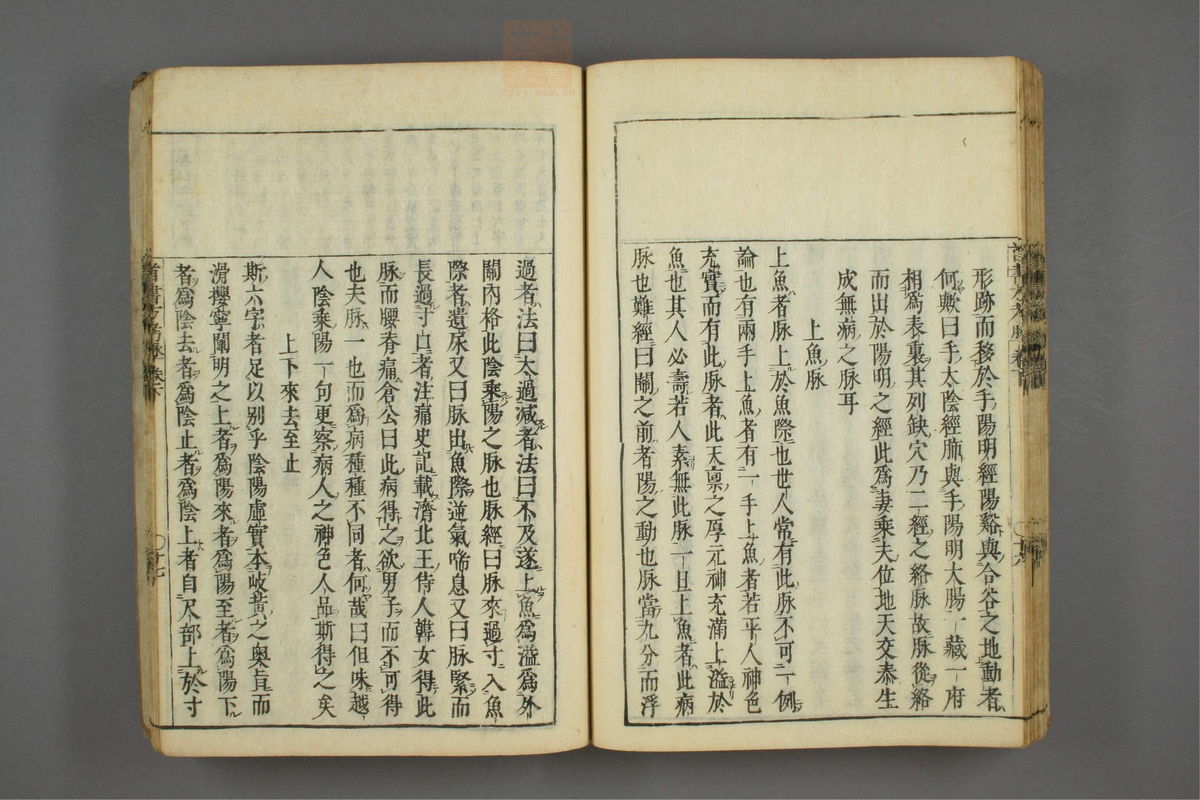 形跡而移於手陽明經陽谿與合谷之地動者
何歟曰手太陰經肺與手陽明大腸一藏一府
相爲表裏其列缺穴乃二經之絡脉故脉從絡
而出於陽明之經此爲妻乘夫位地天交泰生
成無病之脉耳
上魚脉
上魚者脉上於魚際也世人常有此脉不可一例
論也有兩手上魚者有一手上魚者若平人神色
充實而有此脉者此天禀之厚元神充滿上溢於
魚也其人必壽若人素無此脉一旦上魚者此病
脉也難經曰關之前者陽之動也脉當九分而浮
過者法曰太過減者法曰不及遂上魚爲溢爲外
關內格此陰乘陽之脉也脉經曰脉來過寸入魚
際者遺尿又曰脉出魚際逆氣喘息又曰脉緊而
長過寸口者注痛史記載濟北王侍人韓女得此
脉而腰脊痛倉公曰此病得之欲男子而不可得
也夫脉一也而爲病種種不同者何哉曰但味越
人陰乘陽一句更察病人之神色人品斯得之矣
上下來去至止
斯六字者足以別乎陰陽虛實本岐黃之奧旨而
滑攖寧闡明之上者爲陽來者爲陽至者爲陽下
者爲陰去者爲陰止者爲陰上者自尺部上於寸